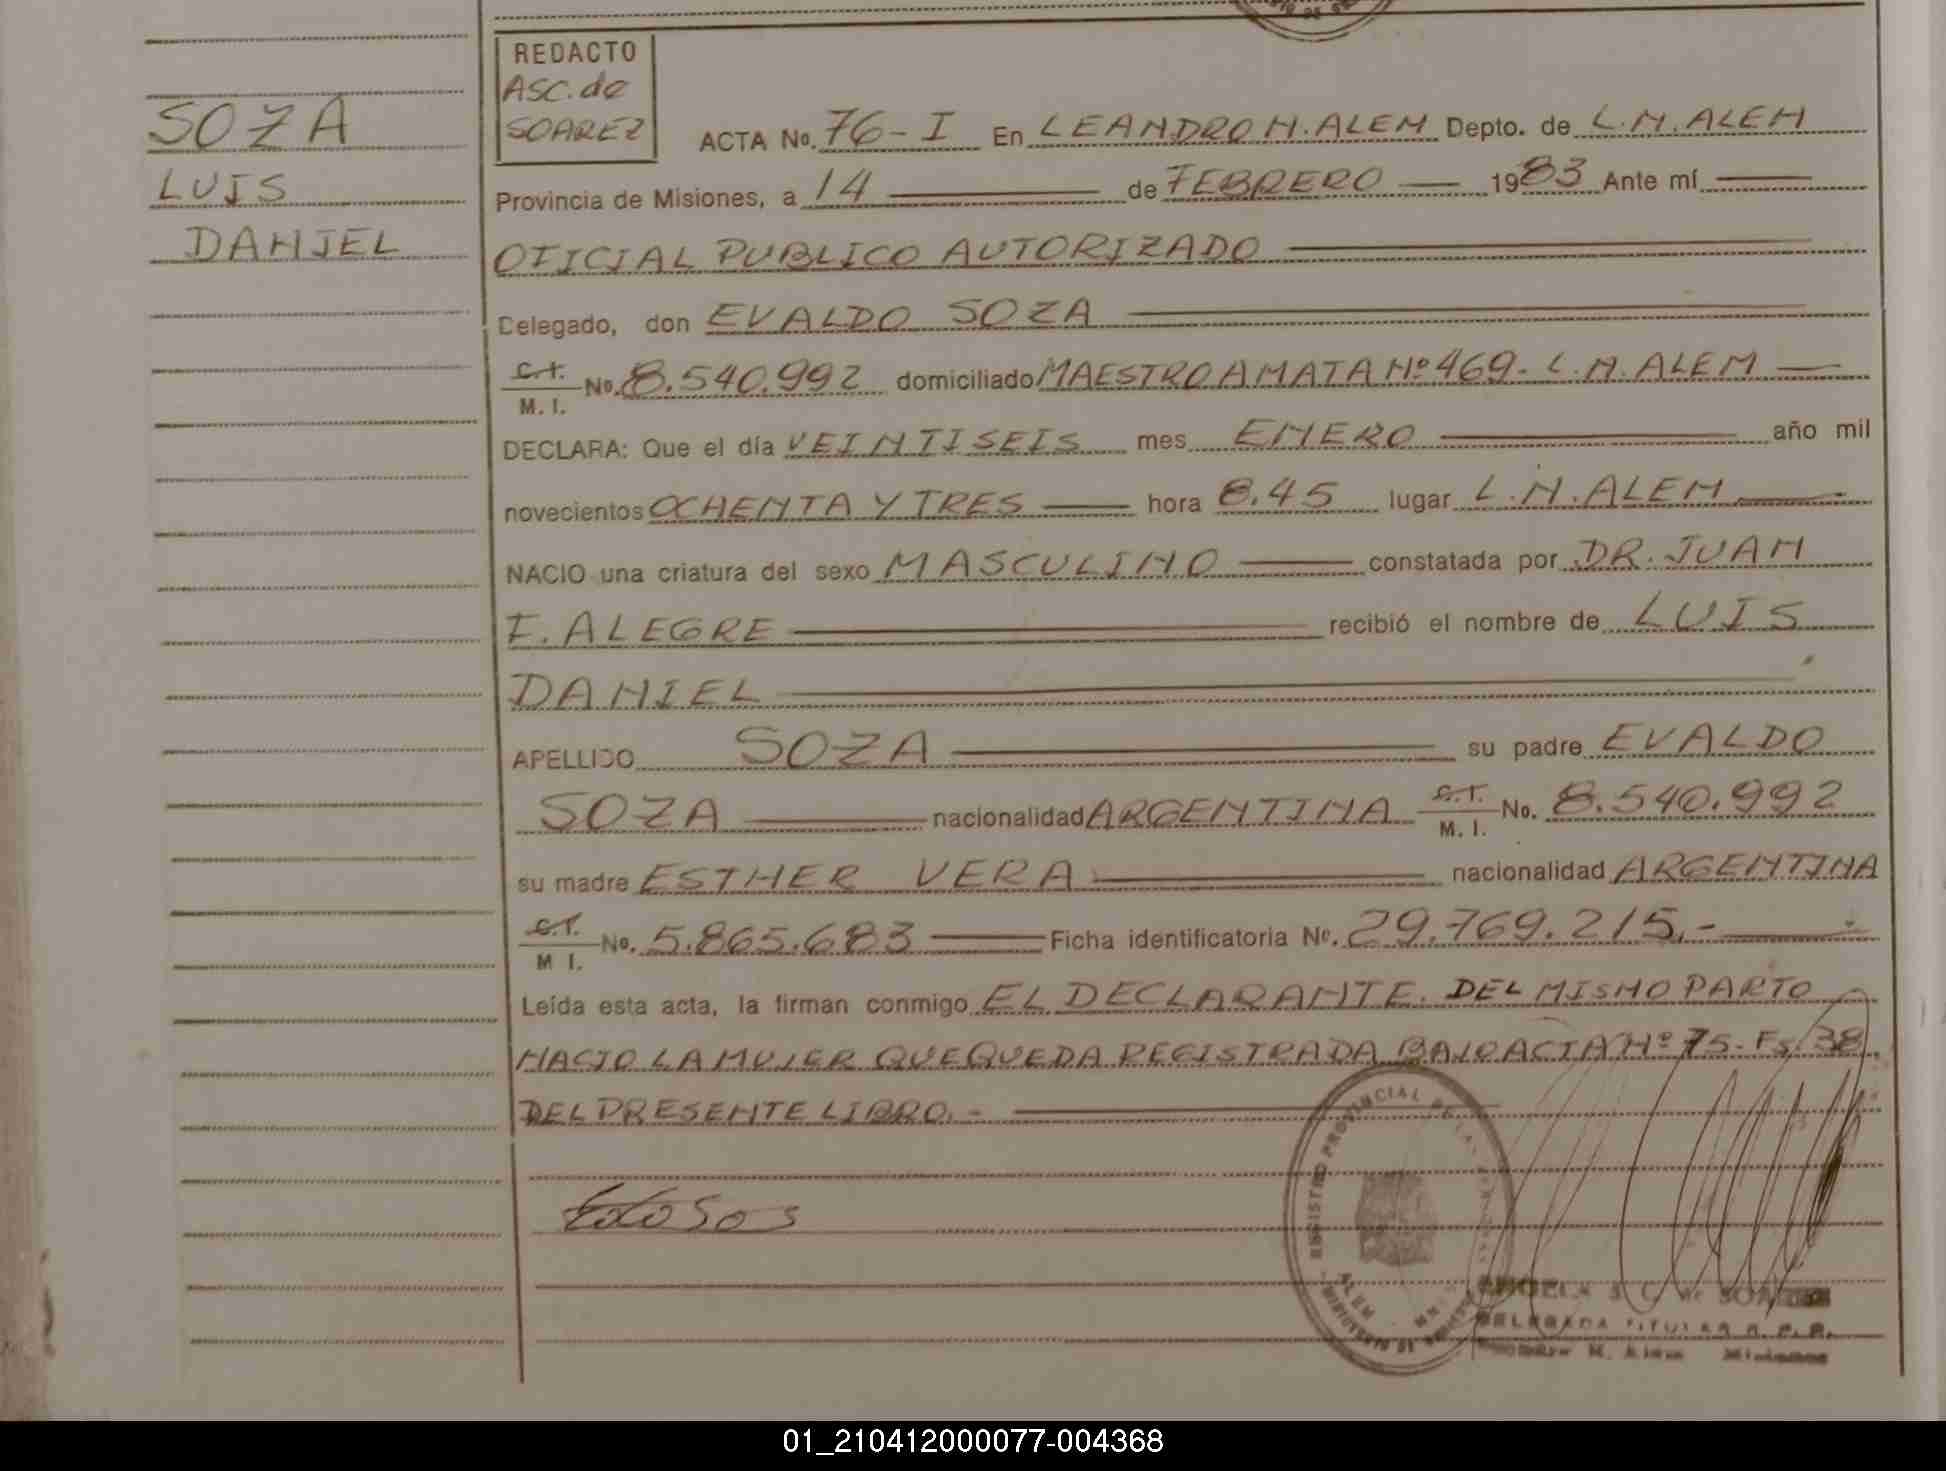 SOZA
LUIS
DANIEL
REDACTO
ASC. de
SOAREZ
ACTA No. 76-I En LEANDRO N. ALEM Depto. de L.N. ALEM
Provincia de Misiones, a 14 de FEBRERO 1983 Ante mí
OFICIAL PUBLICO AUTORIZADO
Delegado, don EVALDO SOZA
C.I.
M. I. No. 8.540.992 domiciliado MAESTRO AMATA Nº 469- L.N. ALEM
DECLARA: Que el día VEINTISEIS mes ENERO año mil
novecientos OCHENTA Y TRES hora 8.45 lugar L.N. ALEM
NACIO una criatura del sexo MASCULINO constatada por DR. JUAN
F. ALEGRE recibió el nombre de LUIS
DANIEL
APELLIDO SOZA su padre EVALDO
SOZA nacionalidad ARGENTINA C.I.
M. I. No. 8.540.992
su madre ESTHER VERA nacionalidad ARGENTINA
C.I.
M I. No. 5.865.683 Ficha identificatoria Nº. 29.769.215.-
Leída esta acta, la firman conmigo EL DECLARANTE. DEL MISMO PARTO
NACIO LA MUJER QUE QUEDA REGISTRADA BAJO ACTA Nº 75- Fs. 38
DEL PRESENTE LIBRO.-
REGISTRO PROVINCIAL DE LAS
ALEM
DELEGADA TITULAR R. P. P.
N. Alem Misiones
01_210412000077-004368